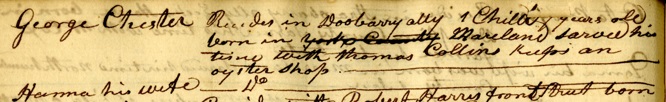 George Chester Resides in Doobarry ally 1 Child years old
born in York County Mareland sarved his
time with Thomas Collins keeps an
oyster shop
Hanna his wife Do
Resides with Robert Harris front Street born